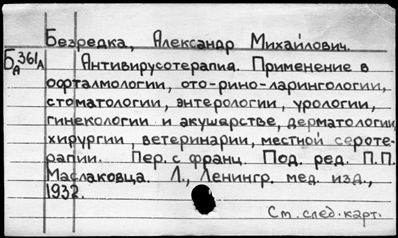 Безредка, Александр Михайлович.
БА 361А Антивирусотерапия. Применение в
оофталмологии, ото-рино-ларингологии,
стоматологии, энтерологии, урологии,
гинекологии и акушерстве, дерматологии,
хирургии, ветеринарии, местной сероте-
рапии. Пер. с франц. Под. ред. П.П.
Маслаковца. Л., Ленингр. мед. изд.,
1932.
См. след. карт.